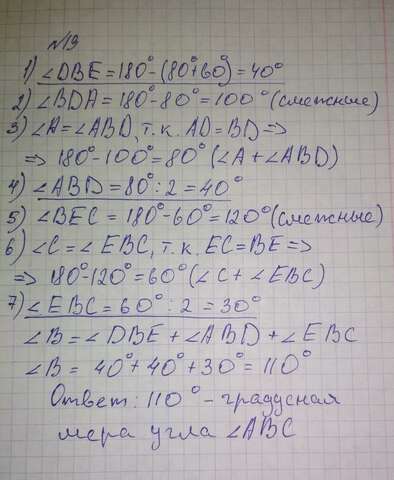 №19
1) ∠DBE = 180° - (80° + 60°) = 40°
2) ∠BDA = 180° - 80° = 100° (смежные)
3) ∠A = ∠ABD, т.к. AD = BD =>
=> 180° - 100° = 80° (∠A + ∠ABD)
4) ∠ABD = 80° : 2 = 40°
5) ∠BEC = 180° - 60° = 120° (смежные)
6) ∠C = ∠EBC, т.к. EC = BE =>
=> 180° - 120° = 60° (∠C + ∠EBC)
7) ∠EBC = 60° : 2 = 30°
∠B = ∠DBE + ∠ABD + ∠EBC
∠B = 40° + 40° + 30° = 110°
Ответ: 110° - градусная
мера угла ∠ABC